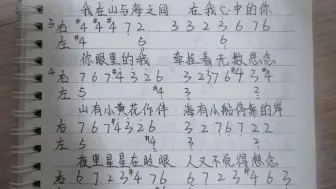 我在山与海之间 在我心中的你
3右 #4 #4 #4 7 2 3 3 2 3 6 7 6
左 #4 5 6
你眼里的我 牵挂着无数思念
4右 7 6 7 #4 3 2 6 3 2 3 7 6 #4 3 #4
左 5 #4 3 2
山有小黄花作伴 海有小船停靠的岸
右 7 6 7 #4 3 2 6 3 2 7 6 7 2 2
左 5 #4 3 2
夜里星星在眨眼 人又不觉得想念
右 6 7 2 3 #4 7 6 6 7 2 3 #4 6 3